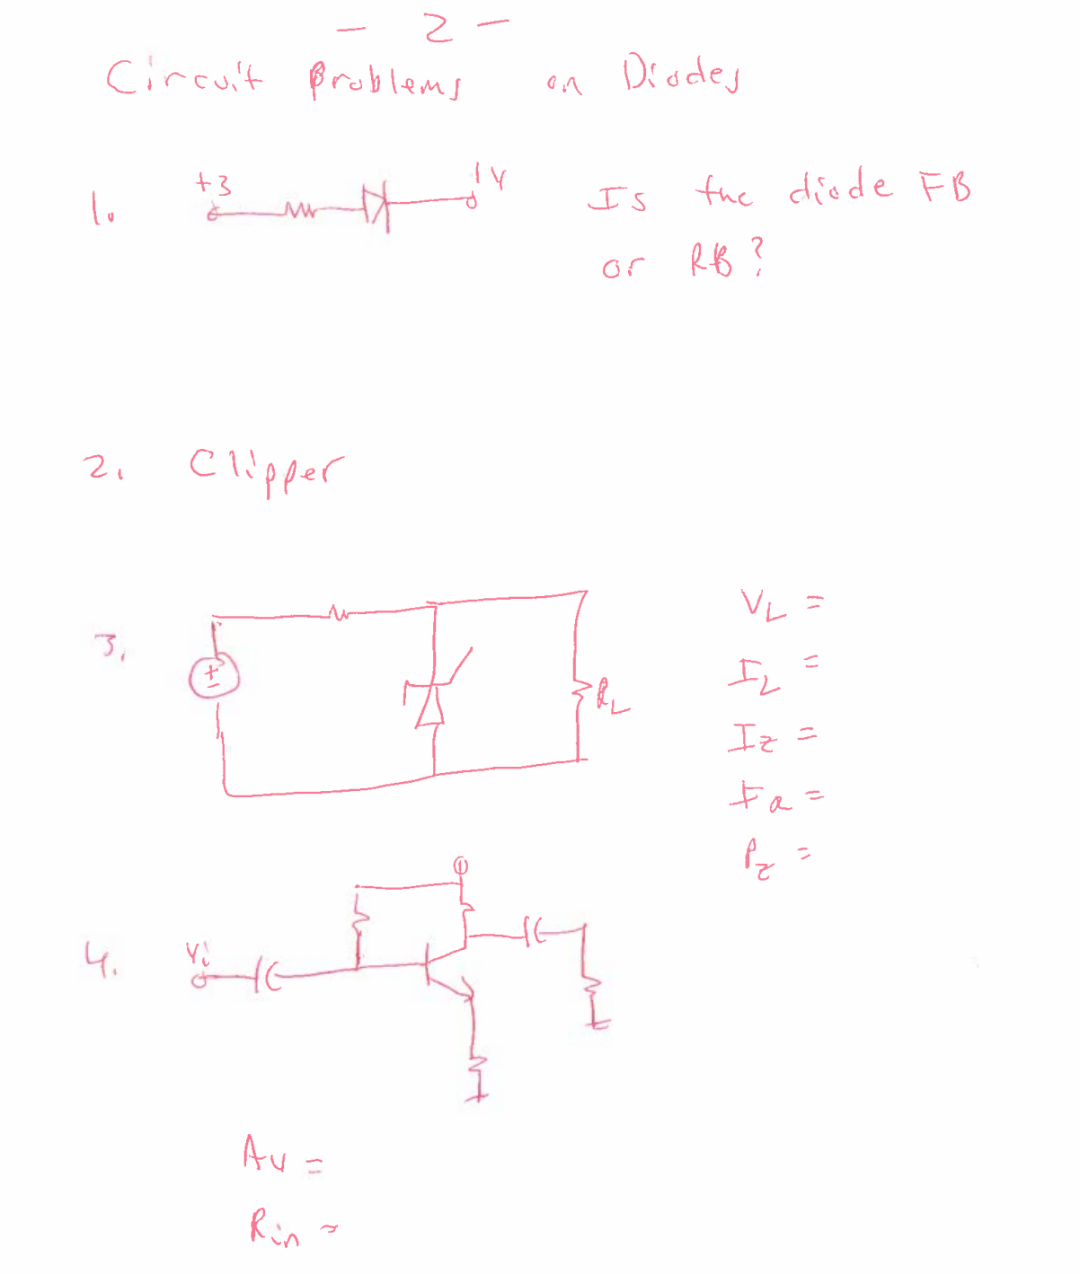 - 2 -
Circuit Problems on Diodes
1. +3 1V Is the diode FB
or RB?
2. Clipper
3. ± RL
VL =
IL =
Iz =
Pz =
4. Vi
Av =
Rin =